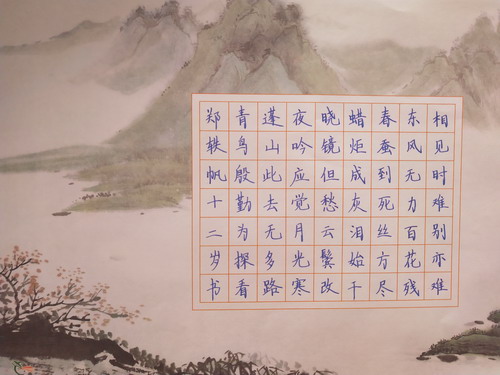 相见时难别亦难
东风无力百花残
春蚕到死丝方尽
蜡炬成灰泪始干
晓镜但愁云鬓改
夜吟应觉月光寒
蓬山此去无多路
青鸟殷勤为探看
郑轶帆十二岁书